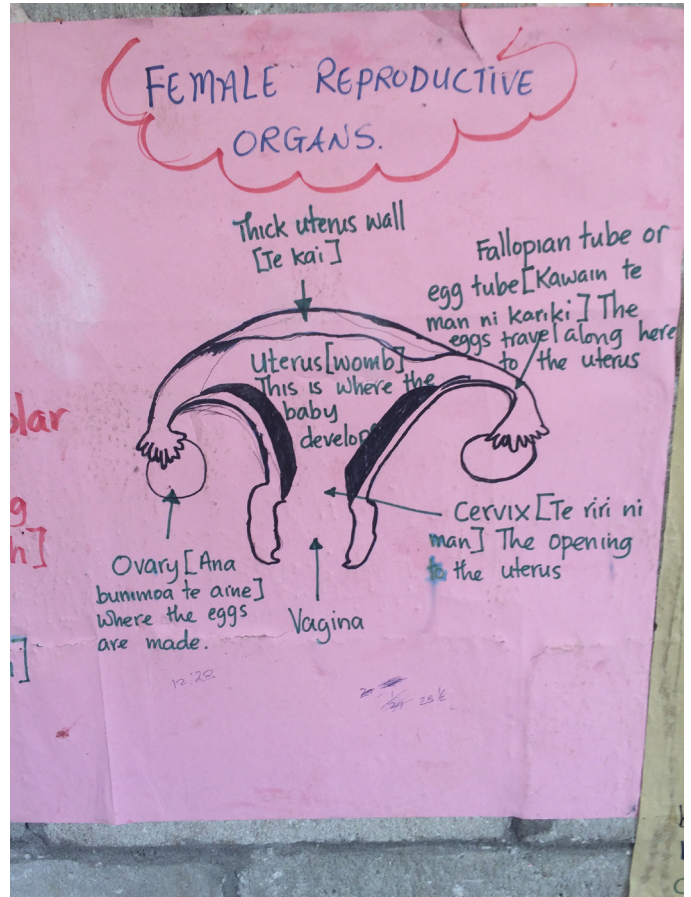 FEMALE REPRODUCTIVE
ORGANS.
Thick uterus wall
[Te kai]
Fallopian tube or
egg tube [Kawain te
man ni kariki] The
eggs travel along here
to the uterus
Uterus [womb]
This is where the
baby
develop
olar
g
h]
Cervix [Te riri ni
man] The opening
to the uterus
Ovary [Ana
bunimoa te aine]
where the eggs
are made.
Vagina
]
12:28